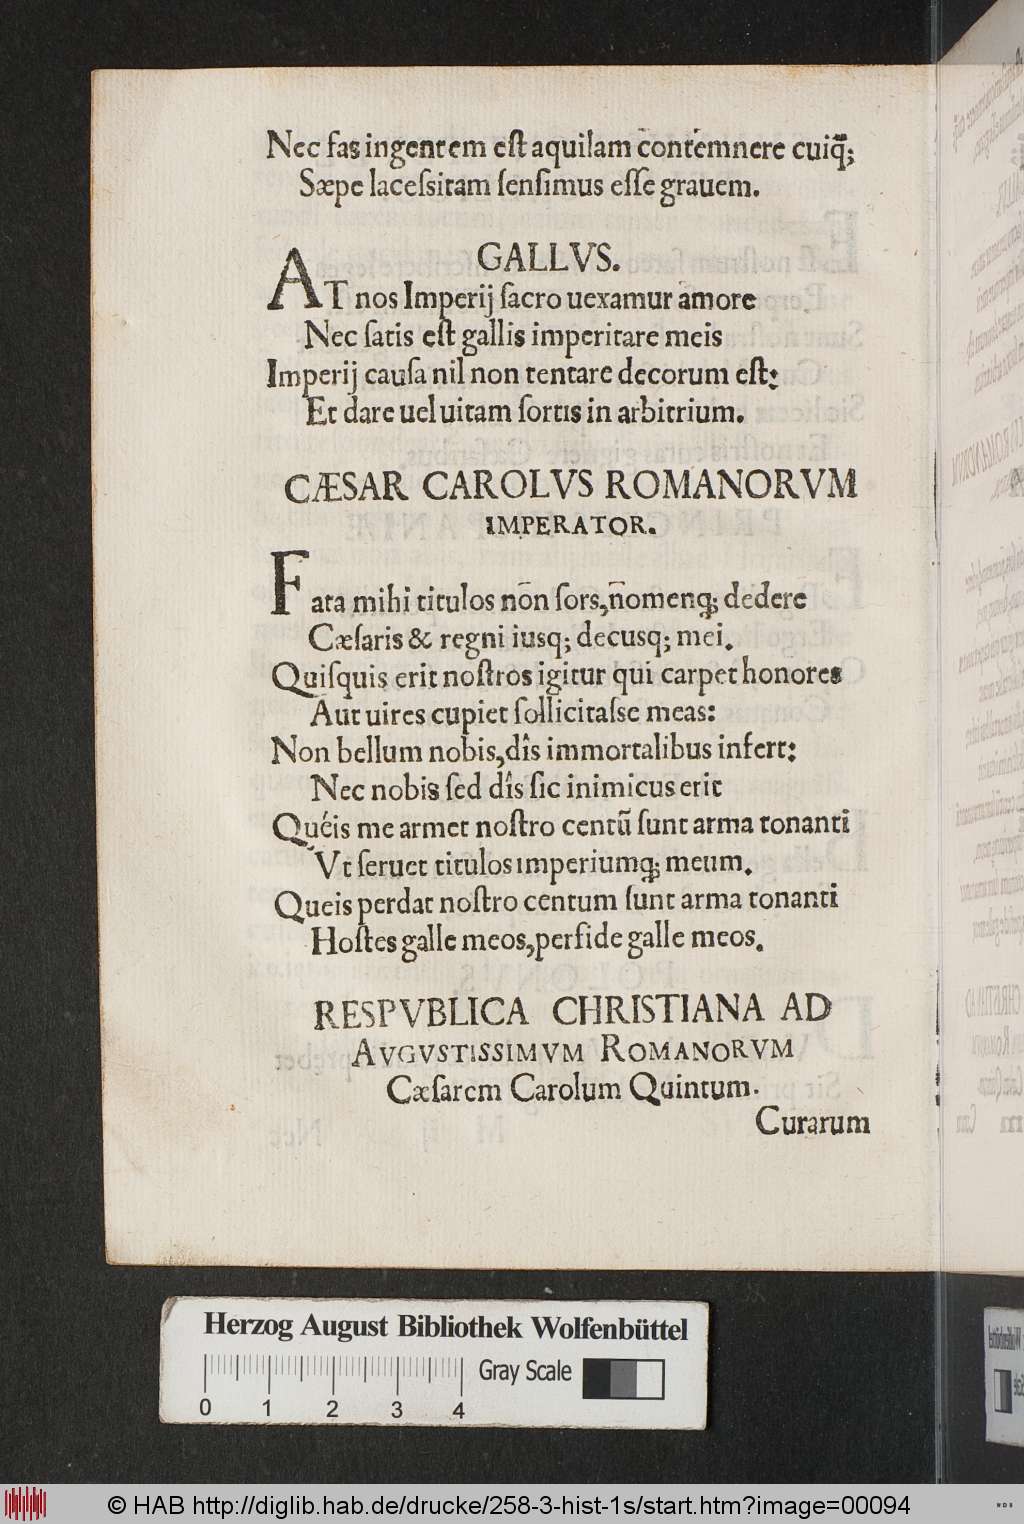 Nec fas ingentem eſt aquilam contemnere cuiq̃;
Sæpe laceſsitam ſenſimus eſſe grauem.
GALLVS.
AT nos Imperij ſacro uexamur amore
Nec ſatis eſt gallis imperitare meis
Imperij cauſa nil non tentare decorum eſt:
Et dare uel uitam ſortis in arbitrium.
CÆSAR CAROLVS ROMANORVM
IMPERATOR.
Fata mihi titulos non ſors, nomenq; dedere
Cæſaris & regni iusq; decusq; mei.
Quiſquis erit noſtros igitur qui carpet honores
Aut uires cupiet ſollicitaſse meas:
Non bellum nobis, dîs immortalibus infert:
Nec nobis ſed dîs ſic inimicus erit
Quéis me armet noſtro centũ ſunt arma tonanti
Vt ſeruet titulos imperiumq; meum.
Queis perdat noſtro centum ſunt arma tonanti
Hoſtes galle meos, perfide galle meos.
RESPVBLICA CHRISTIANA AD
AVGVSTISSIMVM ROMANORVM
Cæſarem Carolum Quintum.
Curarum
Herzog August Bibliothek Wolfenbüttel
Gray Scale
0 1 2 3 4
© HAB http://diglib.hab.de/drucke/258-3-hist-1s/start.htm?image=00094